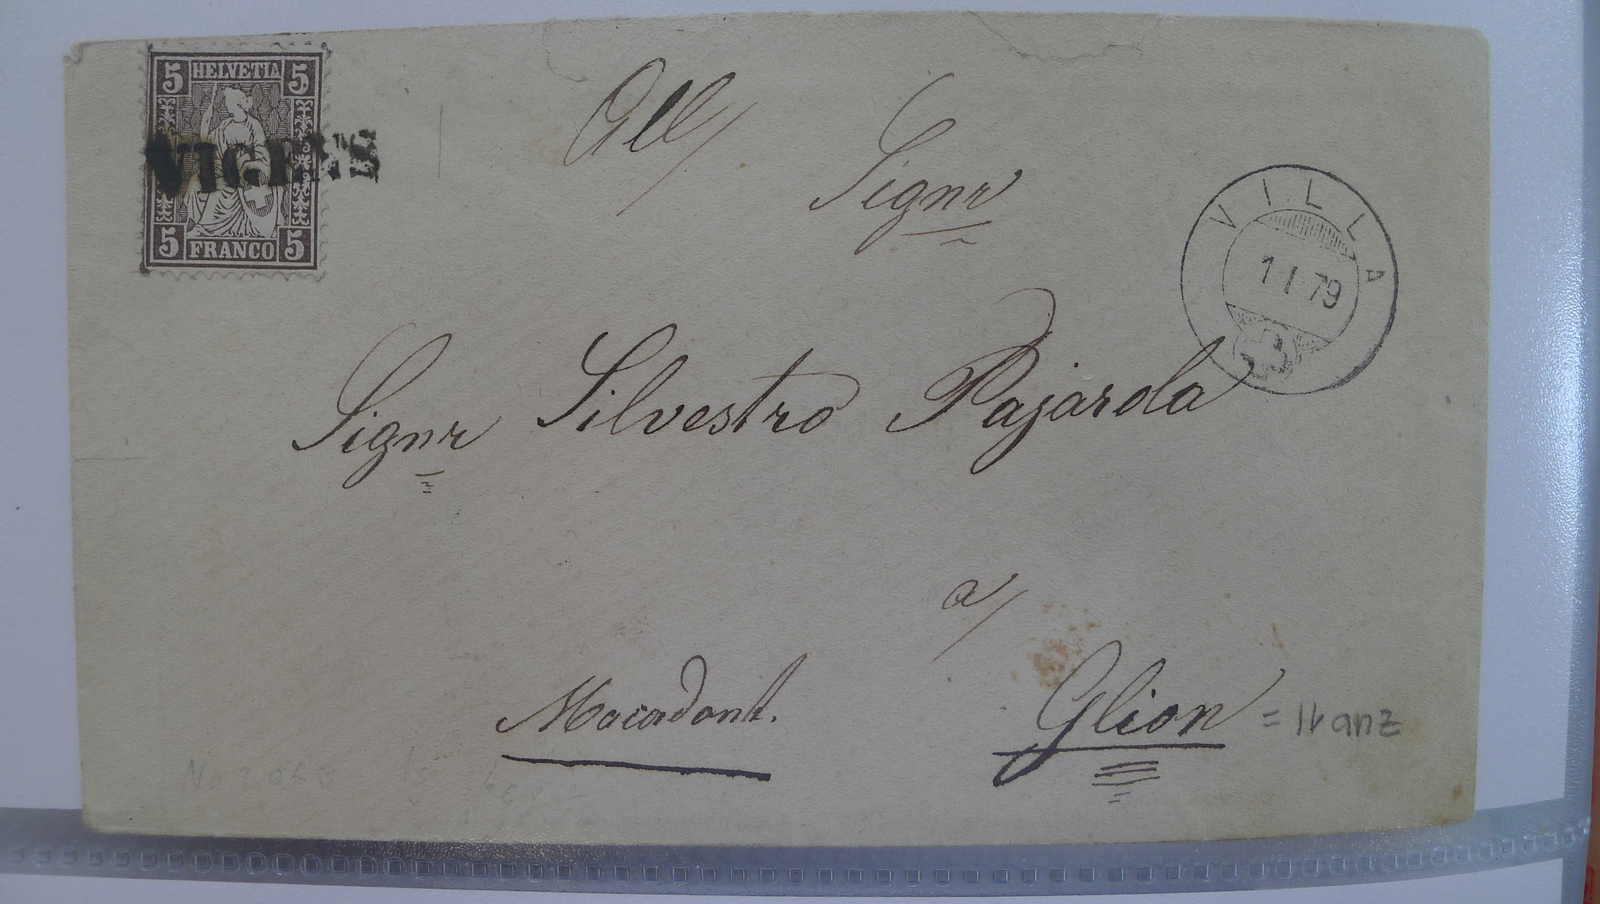 5 HELVETIA 5
VIGENS
5 FRANCO 5
All/
Signr
VILLA
1 I 79
Signr Silvestro Pajarola
a/
Macadont.
Glion = Ilanz